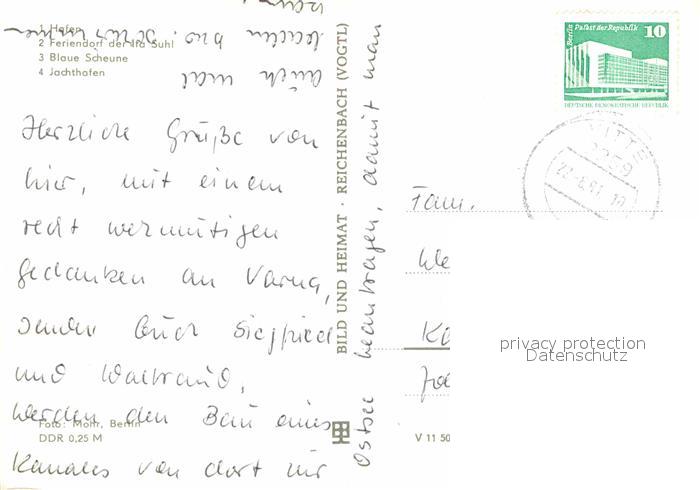 1 Hafen
2 Feriendorf der Ifa Suhl
3 Blaue Scheune
4 Jachthafen
Herzliche Grüße von
hier, mit einem
recht wermutigen
Gedanken an Varna,
senden Euch Siegfried
und Waltraud.
Werden den Bau eines
Kanales von dort zur
Ostsee beantragen, damit man
auch mal
baden
kann
Foto: Mohr, Berlin
DDR 0,25 M
BILD UND HEIMAT · REICHENBACH (VOGTL)
V 11 50
Berlin Palast der Republik
10
DEUTSCHE DEMOKRATISCHE REPUBLIK
VITTE
Fam.
We
Ka
privacy protection
Datenschutz